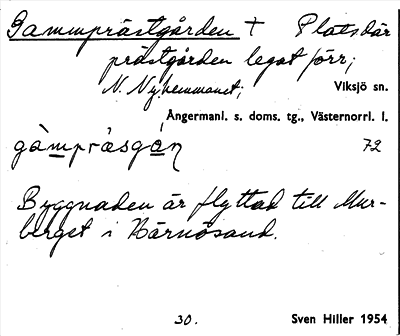 Gammprästgården † Platsdär
prästgården legat förr;
N. Nyhemmanet; Viksjö sn.
Ångermanl. s. doms. tg., Västernorrl. l.
gàmpràsgán 72
Byggnaden är flyttad till Mur-
berget i Härnösand.
30. Sven Hiller 1954